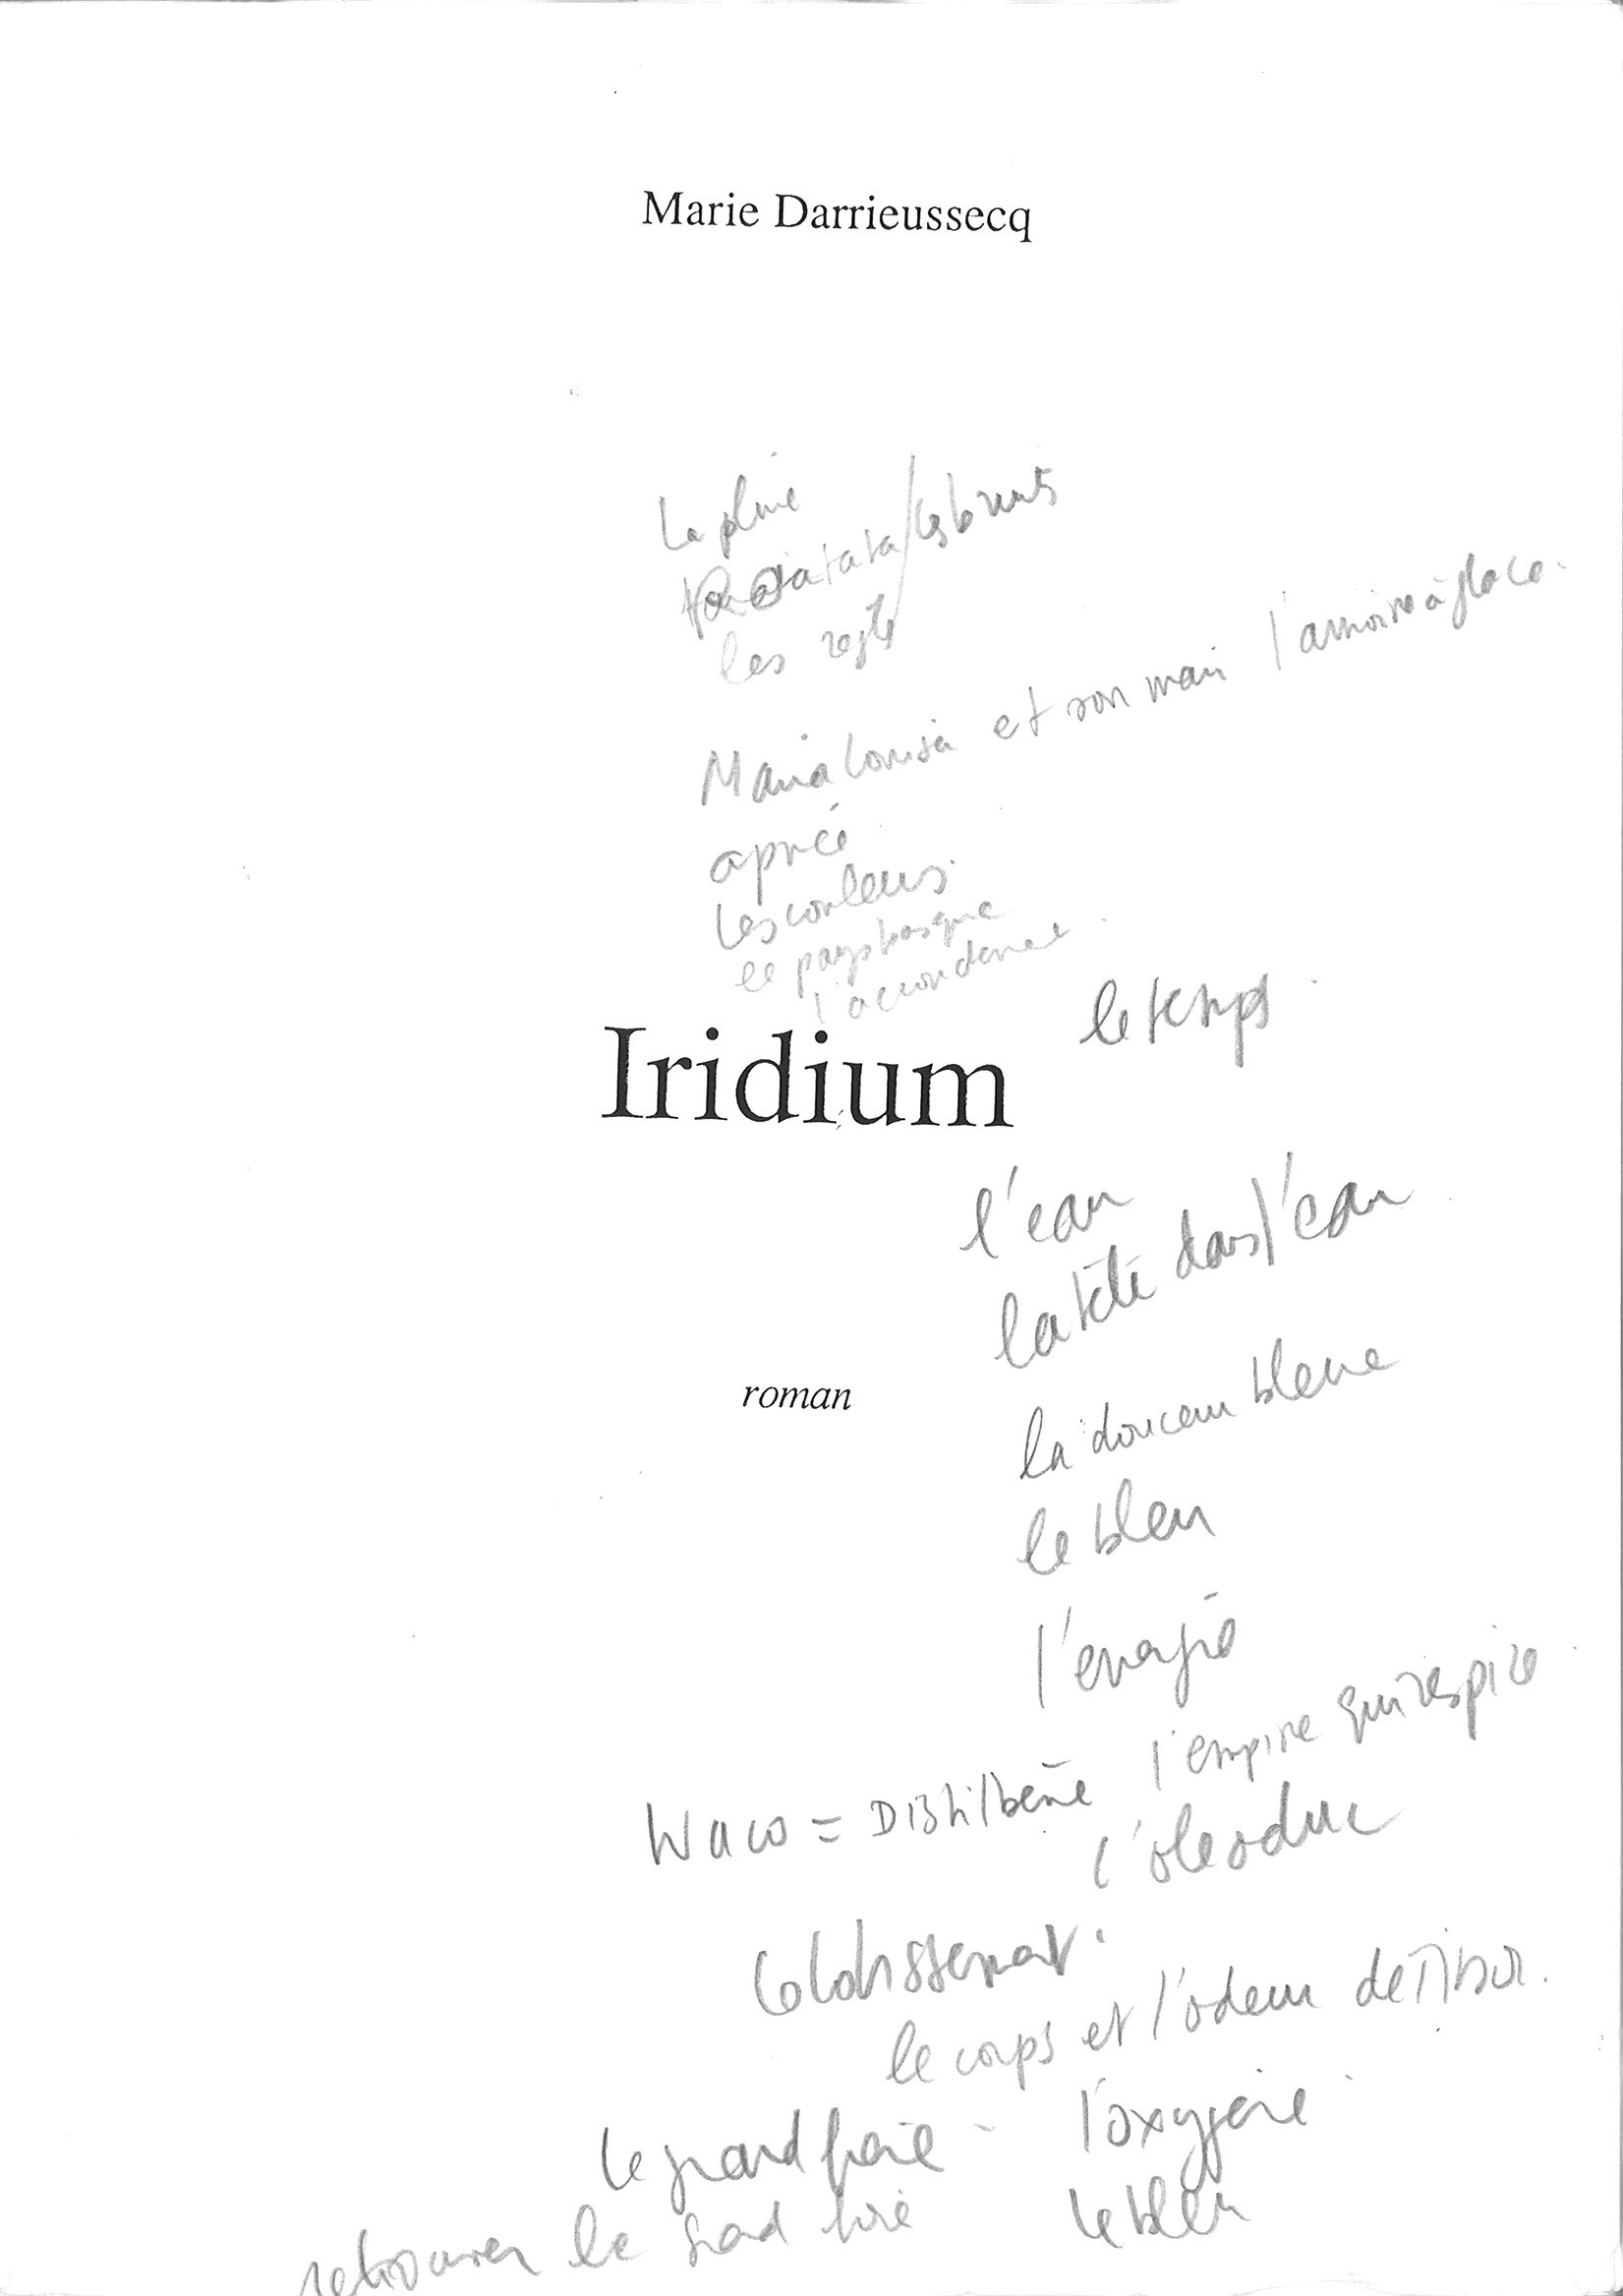 Marie Darrieussecq
La pluie
tatata/les bruits
les
Maria Louisa et son mari l'armoire à glace.
après
les couleurs
le pays basque
le temps
Iridium
l'eau
la tête dans l'eau
roman
la douceur bleue
le bleu
l'énergie
l'empire qui respire
Waco = Distilbène
l'oléoduc
le corps et l'odeur de Tibor.
le grand frère - l'oxygène
retrouver le grand frère
le bleu